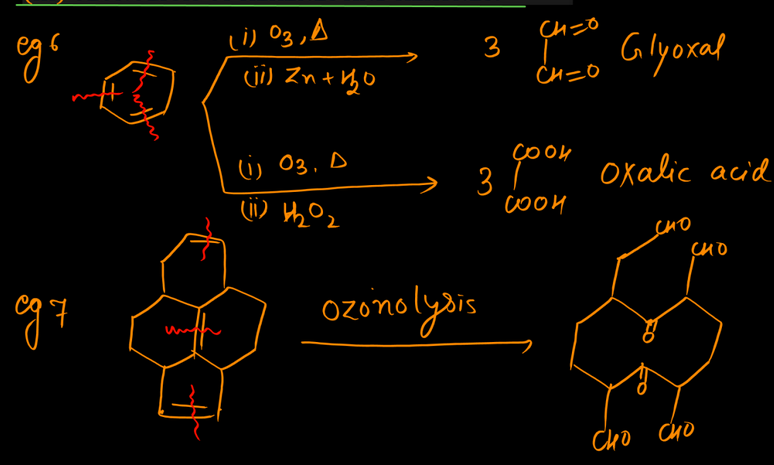 eg 6
(i) O3, Δ
(ii) Zn + H2O
3 CH=O
CH=O
Glyoxal
(i) O3, Δ
(ii) H2O2
3 COOH
COOH
Oxalic acid
eg 7
ozonolysis
CHO
CHO
O
O
CHO
CHO